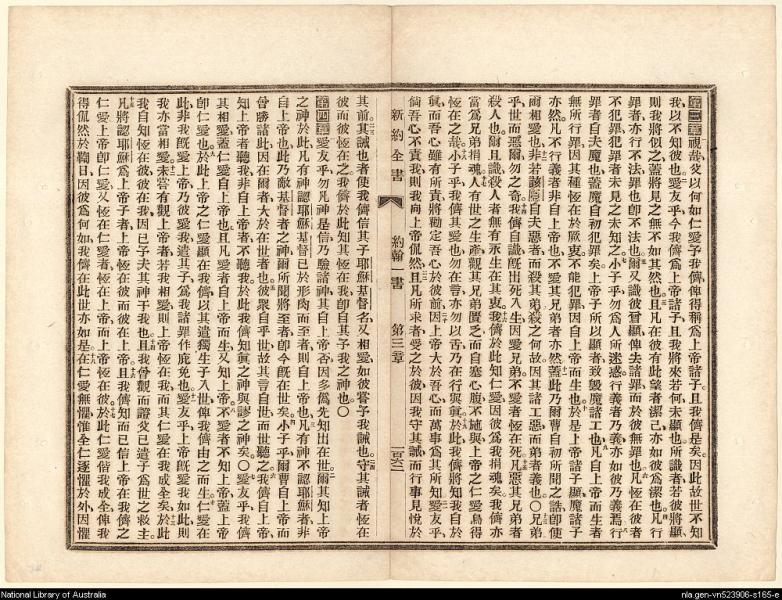 第三章視哉父以何如仁愛予我儕俾得稱爲上帝諸子且我儕是矣因此故世不知
我以不知彼也愛友乎今我儕爲上帝諸子且我將來若何未顯也所識者若彼將顯
則我將似之蓋將見之無不如其然也且凡在彼有此望者潔己亦如彼爲潔也凡行
罪者亦行不法罪也卽不法也爾又識彼曾顯俾去諸罪而於彼無罪也凡恆在彼者
不犯罪犯罪者未見之未知之小子乎勿爲人所迷惑行義者乃義亦如彼乃義焉行
罪者自夫魔也蓋魔自初犯罪矣上帝子所以顯者致毀魔諸工也凡自上帝而生者
無所行罪因其種恆在於厥衷不能犯罪因自上帝而生也於是上帝諸子顯魔諸子
亦然凡不行義者非自上帝也不愛其弟兄者亦然蓋此乃爾曹自初所聞之誥卽使
爾相愛也非若該隱自夫惡者而殺其弟殺之何故因其諸工惡而弟者義也○兄弟
乎世而惡爾勿之奇我儕自識旣出死入生因愛兄弟不愛者恆在死凡惡其兄弟者
殺人也爾且識殺人者無有永生在其衷我儕於此知仁愛因彼爲我捐魂矣我儕亦
當爲兄弟捐魂人有世之生產觀其兄弟匱乏而自塞心腹不施與上帝之仁愛烏得
恆在之哉小子乎我儕其愛也勿在言亦勿以舌乃在行與眞於此我儕將知我自於
眞而吾心雖有所責將勸定吾心於彼前因上帝大於吾心而萬事爲其所知愛友乎
倘吾心不責我則我向上帝侃然且凡所求者受之於彼因我守其誡而行事見悅於
新約全書 約翰一書 第三章 一百六二
其前其誡也者使我儕信其子耶穌基督名又相愛如彼嘗予我誡也守其誡者恆在
彼而彼恆在之我儕於此知其恆在我卽自其予我之神也○
第四章愛友乎勿凡神是信乃驗諸神其自上帝否因多僞先知出在世爾其知上帝
之神於此凡有神認耶穌基督已於形肉而至者則自上帝也凡有神不認耶穌者非
自上帝也此乃敵基督者之神爾所聞將至者卽今旣在世矣小子乎爾曹自上帝而
曾勝諸此因在爾者大於在世者也彼衆自乎世故其言自世而世聽之我儕自上帝
知上帝者聽我非自上帝者不聽我於此我儕知眞之神與謬之神矣○愛友乎我儕
其相愛蓋仁愛自上帝也且凡愛者自上帝而生又知上帝不愛者不知上帝蓋上帝
卽仁愛也於此上帝之仁愛顯在我儕以其遣獨生子入世俾我儕由之而生仁愛在
此非我旣愛上帝乃彼愛我遣其子爲我諸罪作庇免也愛友乎上帝旣愛我如此則
我亦當相愛未嘗有觀上帝者若我相愛則上帝恆在我而其仁愛在我成全矣於此
我自知恆在彼彼在我因已予夫其神于我也且我曾觀而證父已遣子爲世之救主
凡將認耶穌爲上帝子者上帝恆在彼而彼在上帝且我儕知而已信上帝在我儕之
仁愛上帝卽仁愛又恆在仁愛者恆在上帝而上帝恆在彼於此仁愛偕我成全俾我
得侃然於鞫日因彼爲何如我儕在此世亦如是在仁愛無懼惟全仁逐懼於外因懼
National Library of Australia
nla.gen-vn523906-s165-e